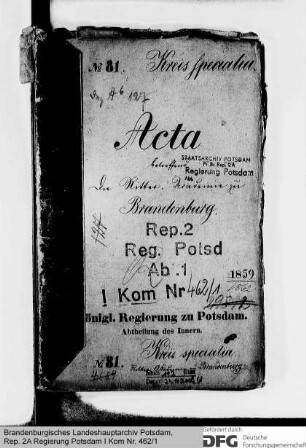 No 81. Kreis specialia.
Acta
betreffend
STAATSARCHIV POTSDAM
Pr. Br. Rep. 2A
Regierung Potsdam
Die Ritter-Academie zu
Brandenburg.
Rep.2
Reg. Potsd
Ab.1
I Kom Nr 462/1
1859
Königl. Regierung zu Potsdam.
Abtheilung des Innern.
No 81. Kreis specialia
Brandenburg
Brandenburgisches Landeshauptarchiv Potsdam,
Rep. 2A Regierung Potsdam I Kom Nr. 462/1
Gefördert durch
DFG Deutsche
Forschungsgemeinschaft